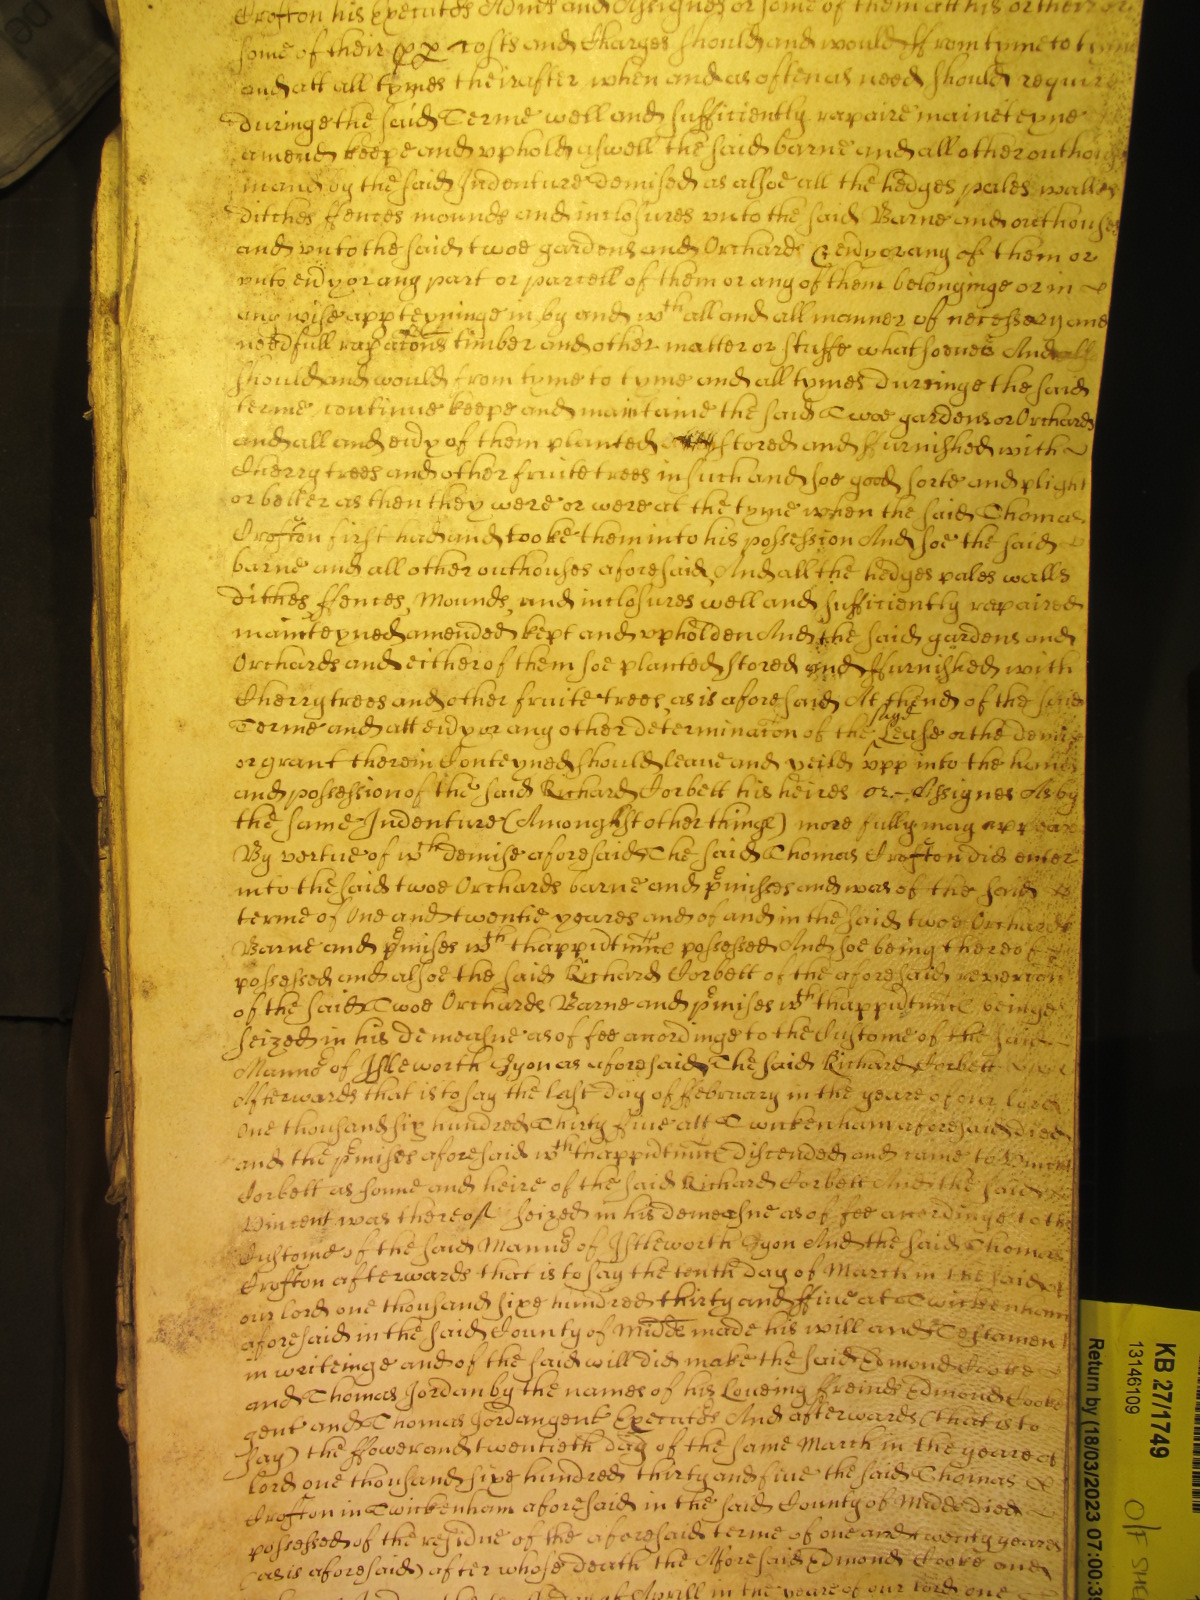 Crofton his Executors Admrs and Assignes or some of them att his or their or
some of their pp costs and Charges should and would ffrom tyme to tyme
and att all tymes theirafter when and as often as need should require
duringe the said Terme well and sufficiently repaire mainteyne
amend keepe and vphold aswell the said barne and all other outhouses
in and by the said Indenture demised as alsoe all the hedges pales walles
ditches ffences mounds and inclosures vnto the said Barne and outhouses
and vnto the said twoe gardens and Orchards & eidy or any of them or
vnto eidy or any part or parcell of them or any of them belonginge or in
any wise appteyninge in by and wth all and all manner of necessary and
needfull repacons timber and other matter or stuffe whatsoever And
should and would from tyme to tyme and all tymes durringe the said
terme continue keepe and maintaine the said Twoe gardens or Orchards
and all and eidy of them planted stored and ffurnished with
Cherry trees and other fruite trees in such and soe good sorte and plight
or better as then they were or were at the tyme when the said Thomas
Crofton first had and tooke them into his possession And soe the said
barne and all other outhouses aforesaid And all the hedges pales walls
ditches ffences Mounds and inclosures well and sufficiently repaired
mainteyned amended kept and vpholden And the said gardens and
Orchards and either of them soe planted stored and ffurnished with
Cherry trees and other fruite trees as is aforesaid At thend of the said
Terme and att eidy or any other determinacon of the said Lease or the demise
or grant therein Conteyned should leave and yeild vpp into the hands
and possession of the said Richard Corbett his heires or Assignes As by
the same Indenture (Amongst other things) more fully may appeare
By vertue of wch demise aforesaid The said Thomas Crofton did enter
into the said twoe Orchards barne and pmisses and was of the said
terme of One and twentie yeares and of and in the said twoe Orchards
Barne and pmises wth thapptnnce possessed And soe being thereof
possessed and alsoe the said Richard Corbett of the aforesaid reverson
of the said Twoe Orchards Barne and pmises wth thapptnnce beinge
seized in his demeasne as of fee accordinge to the Custome of the said
Mannor of Istleworth Syon as aforesaid The said Richard Corbett
Afterwards that is to say the last day of ffebruary in the yeare of our lord
One thousand six hundred Thirty five att Twickenham aforesaid died
and the pmises aforesaid wth thapptnnce discended and came to Vincent
Corbett as sonne and heire of the said Richard Corbett And the said
Vincent was thereof seized in his demeasne as of fee accordinge to the
Custome of the said Mannor of Istleworth Syon And the said Thomas
Crofton afterwards that is to say the tenth day of March in the said
our lord one thousand sixe hundred thirty and ffive at Twickenham
aforesaid in the said County of Midds made his will and Testament
in writeinge and of the said will did make the said Edmond Cooke
and Thomas Jordan by the names of his Loveing ffreinds Edmond Cooke
gent and Thomas Jordan gent Executors And afterwards (that is to
say) the ffower and twentieth day of the same March in the yeare of
lord one thousand sixe hundred thirty and five the said Thomas
Crofton in Twickenham aforesaid in the said County of Midds died
possessed of the residue of the aforesaid terme of one and twenty yeares
(as is aforesaid) after whose death the Aforesaid Edmond Cooke and
day of Aprill in the yeare of our lord one
KB 27/1749
13146109
Return by (18/03/2023 07:00:3
O/F SHE